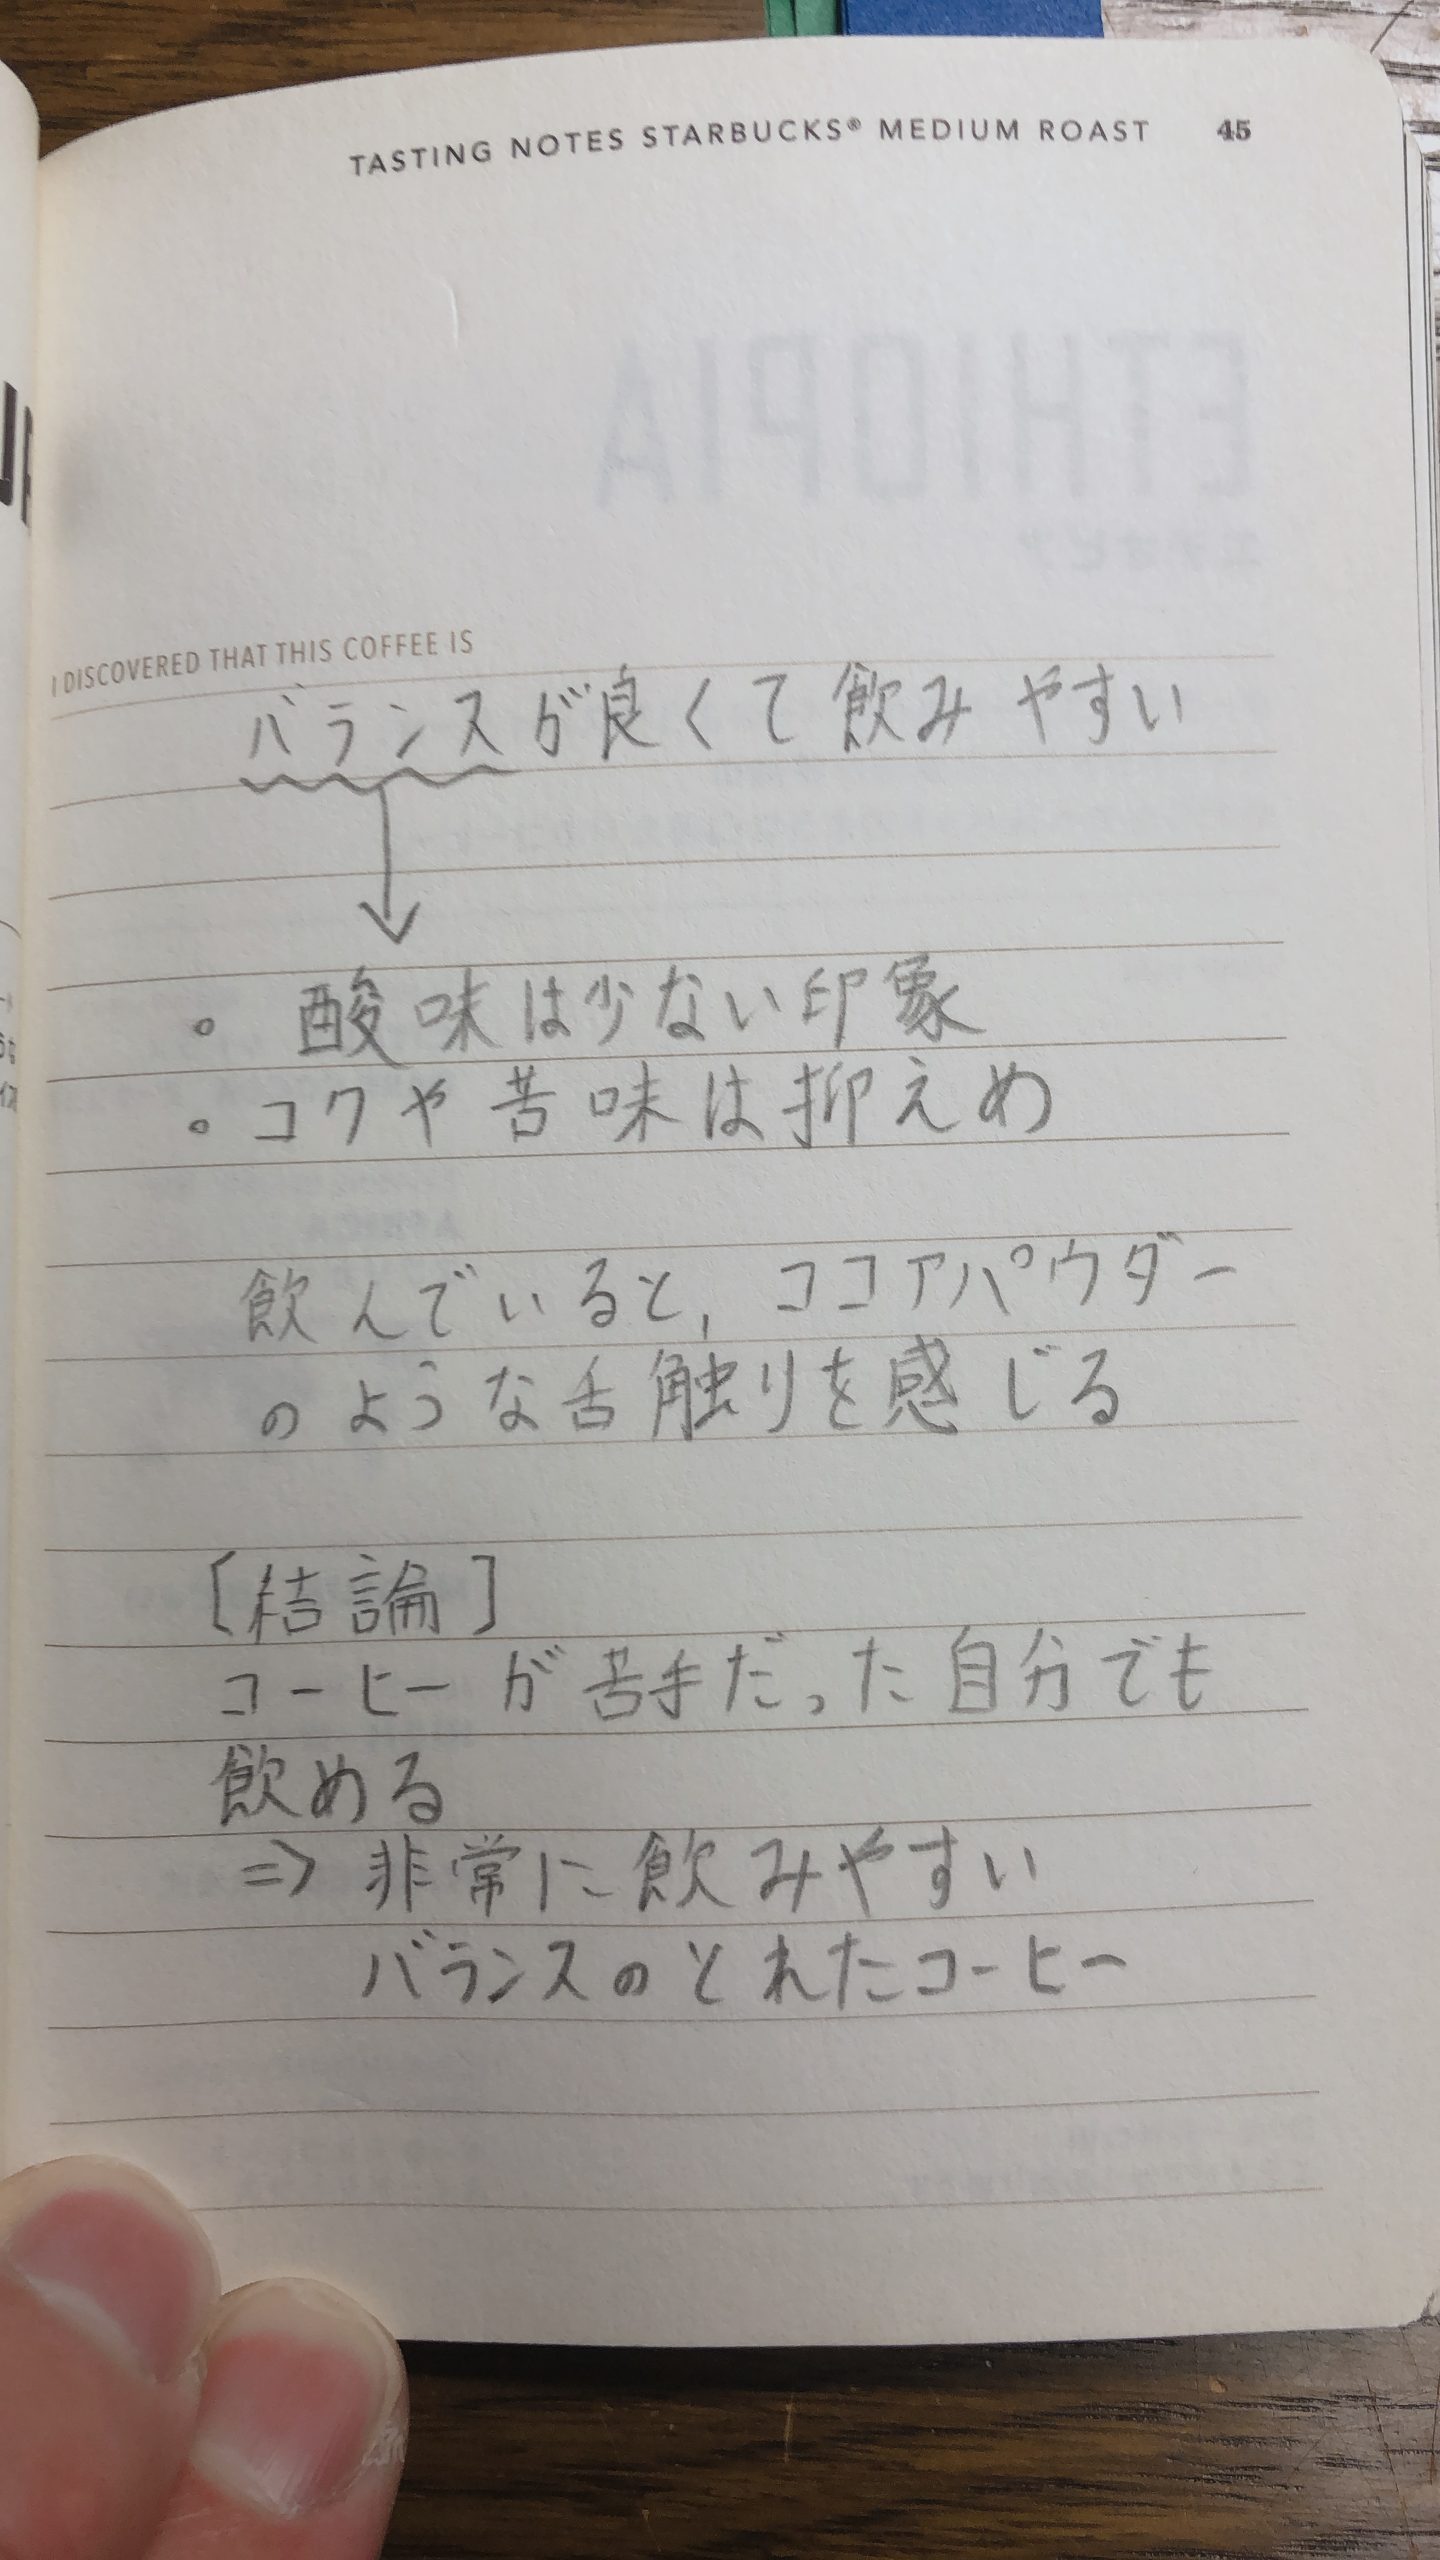 TASTING NOTES STARBUCKS® MEDIUM ROAST 45
I DISCOVERED THAT THIS COFFEE IS
バランスが良くて飲みやすい
。酸味は少ない印象
。コクや苦味は抑えめ
飲んでいると, ココアパウダー
のような舌触りを感じる
[結論]
コーヒーが苦手だった自分でも
飲める
⇒ 非常に飲みやすい
バランスのとれたコーヒー
ETHIOPIA
エチオピア